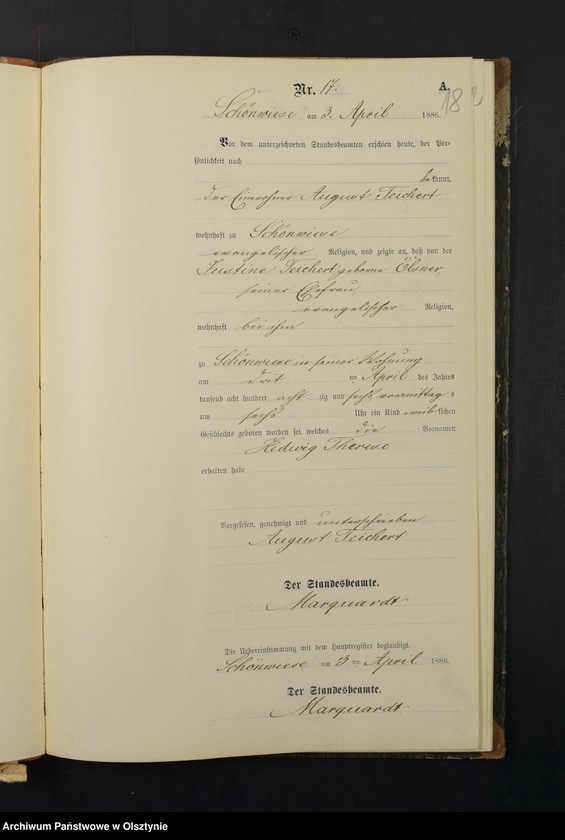 Nr. 17. A.
18
Schönwiese am 3. April 1886.
Vor dem unterzeichneten Standesbeamten erschien heute, der Per-
sönlichkeit nach
bekannt,
der Einwohner August Teichert
wohnhaft zu Schönwiese
evangelischer Religion, und zeigte an, daß von der
Justine Teichert geborne Ölsner,
seiner Ehefrau,
evangelischer Religion,
wohnhaft bei ihm
zu Schönwiese in seiner Wohnung
am drit ten April des Jahres
tausend acht hundert acht zig und sechs vormittags
um sechs Uhr ein Kind weib lichen
Geschlechts geboren worden sei, welches die Vornamen
Hedwig Therese
erhalten habe
Vorgelesen, genehmigt und unterschrieben
August Teichert
Der Standesbeamte.
Marquardt
Die Uebereinstimmung mit dem Hauptregister beglaubigt.
Schönwiese, am 3 ten April 1886.
Der Standesbeamte.
Marquardt.
Archiwum Państwowe w Olsztynie